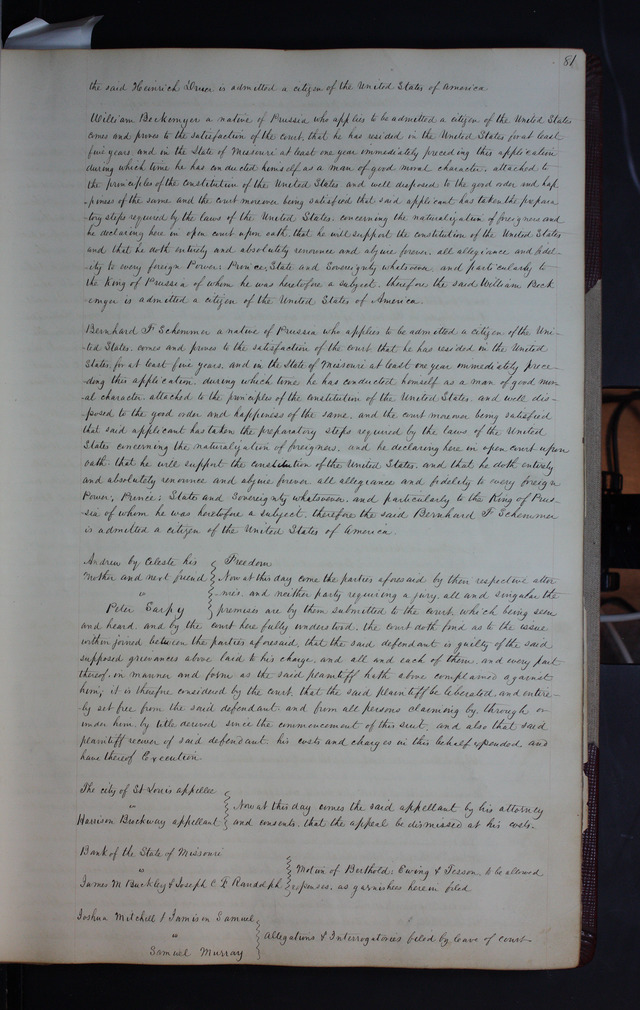 81
the said Heinrich Druce is admitted a citizen of the United States of America
William Beckemyer a native of Prussia who applies to be admitted a citizen of the United States
comes and proves to the satisfaction of the court, that he has resided in the United States for at least
five years and in the State of Missouri at least one year immediately preceding this application
during which time he has conducted himself as a man of good moral character, attached to
the principles of the constitution of the United States and well disposed to the good order and hap
-piness of the same and the court moreover being satisfied that said applicant has taken the prepara
tory steps required by the laws of the United States. concerning the naturalization of foreigners and
he declaring here in open court upon oath, that he will support the constitution of the United States
and that he doth entirely and absolutely renounce and abjure forever, all allegiance and fidel-
ity to every foreign Power, Prince, State and Sovereignty whatsoever, and particularly to
the King of Prussia of whom he was heretofore a subject, therefore the said William Beck
emyer is admitted a citizen of the United States of America.
Bernhard F Schemmer a native of Prussia who applies to be admitted a citizen of the Uni-
ted States. comes and proves to the satisfaction of the court that he has resided in the United
States for at least five years, and in the State of Missouri at least one year immediately prece-
ding this application during which time he has conducted himself as a man of good mor
al character attached to the principles of the constitution of the United States. and well dis-
posed to the good order and happiness of the same, and the court moreover being satisfied
that said applicant has taken the preparatory steps required by the laws of the United
States concerning the naturalization of foreigners, and he declaring here in open court upon
oath that he will support the constitution of the United States, and that he doth entirely
and absolutely renounce and abjure forever all allegiance and fidelity to every foreign
Power, Prince, State and Sovereignty whatsoever, and particularly to the King of Prus-
sia of whom he was heretofore a subject, therefore the said Bernhard F Schemmer
is admitted a citizen of the United States of America.
Andrew by Celeste his Freedom
Mother and next friend Now at this day come the parties aforesaid by their respective attor
" nies, and neither party requiring a jury, all and singular the
Peter Sarpy premises are by them submitted to the court, which being seen
and heard, and by the court here fully understood, the court doth find as to the issue
within joined between the parties aforesaid, that the said defendant is guilty of the said
supposed grievances above laid to his charge, and all and each of them, and every part
thereof, in manner and form as the said plaintiff hath above complained against
him; it is therefore considered by the court, that the said plaintiff be liberated, and entire-
ly set free from the said defendant and from all persons claiming by, through or
under him, by title derived since the commencement of this suit, and also that said
plaintiff recover of said defendant his costs and charges in this behalf expended, and
have thereof Execution.
The city of St Louis appellee
" Now at this day comes the said appellant by his attorney
Harrison Buckway appellant and consents that the appeal be dismissed at his costs.
Bank of the State of Missouri
" Motion of Berthold, Ewing & Tesson, to be allowed
James M Buckley & Joseph C D Randolph expenses, as garnishees herein filed
Joshua Mitchell & Jamison Samuel
" Allegations & Interrogatories filed by leave of court
Samuel Murray